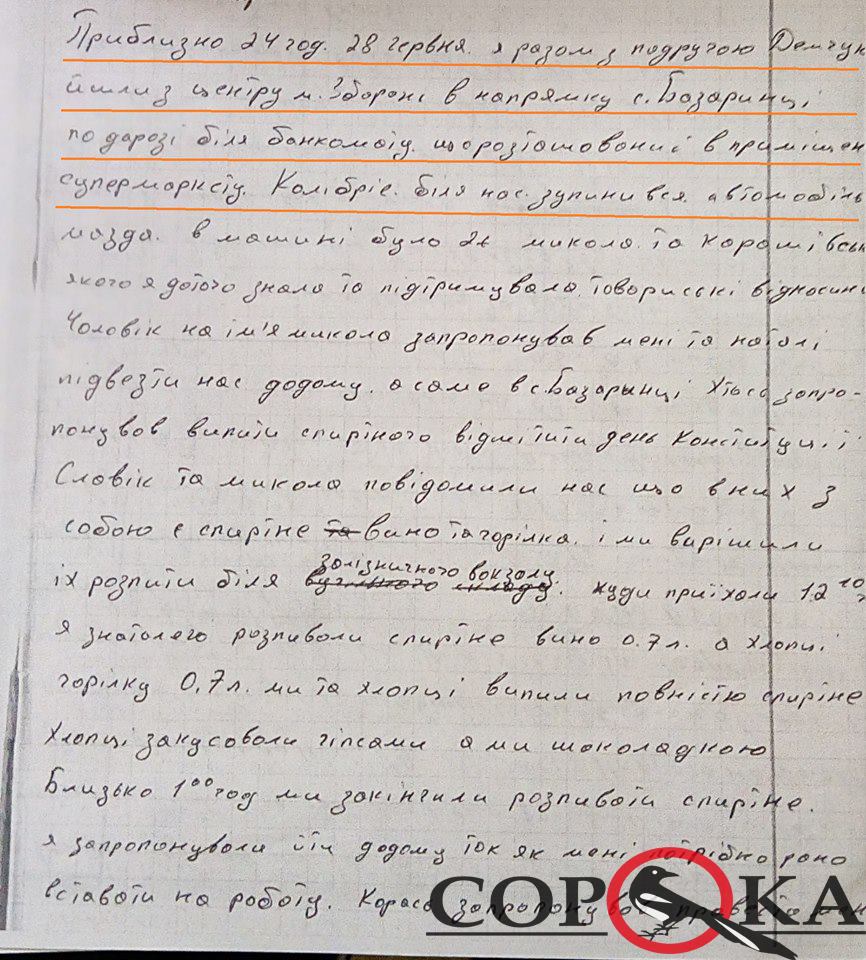 Приблизно 24 год. 28 червня. я разом з подругою Демчук
йшли з центру м. Збораж в напрямку с. Базаринці
по дорозі біля банкомату. що розташований в приміщен
супермаркету. Колібріс. біля нас. зупинився. автомобіль
мазда. в машині було 2є микола. та
якого я дотого знала та підтримувала. товариські відносини
Чоловік на ім'я микола запропонував мені та наталі
підвезти нас додому. а саме в с. Базаринці Хтось запро-
понував випити спиртного відмітити день Конституції
Славік та микола повідомили нас що в них з
собою є спиртне та вино та горілка. і ми вирішили
залізничного вокзалу
їх розпити біля куди приїхали
я знаталею розпивали спиртне вино 0.7 л. а хлопці
горілку 0,7 л. ми та хлопці випили повністю спиртне
Хлопці закусовали чіпсами а ми шоколадкою
Близько 1⁰⁰ год ми закінчили розпивати спиртне.
я запропонувала йти додому так як мені потрібно рано
вставати на роботу.
СОРОКА